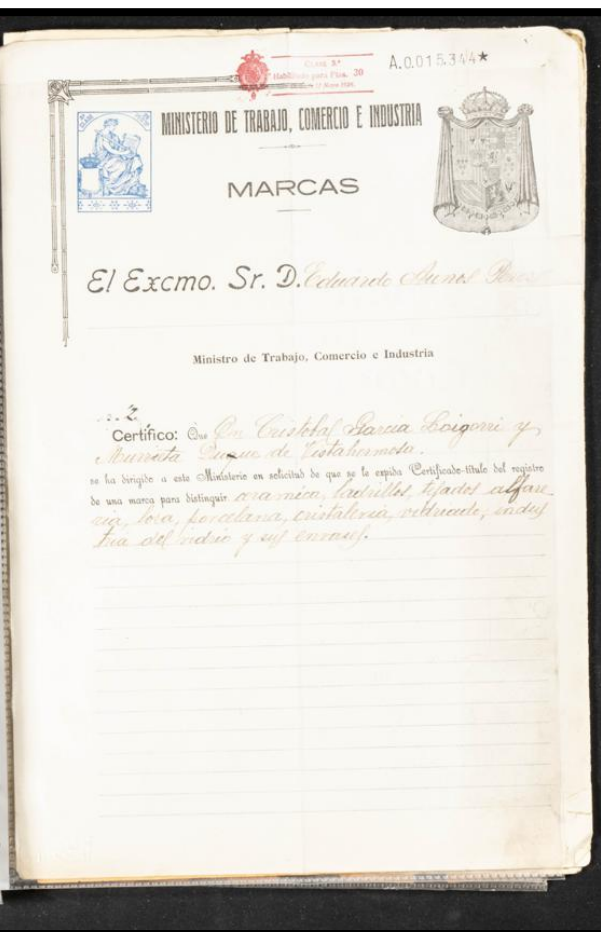 CLASE 8ª
Habilitado para Ptas. 20
A.0.015.344★
MINISTERIO DE TRABAJO, COMERCIO E INDUSTRIA
MARCAS
El Excmo. Sr. D. Eduardo Aunos
Ministro de Trabajo, Comercio e Industria
2
Certifico: Que Dn Cristobal Garcia Loigorri y
Murrieta Duque de Vistahermosa.
se ha dirigido a este Ministerio en solicitud de que se le expida Certificado-título del registro
de una marca para distinguir ceramica, ladrillos, tejados alfare-
ria, loza, porcelana, cristaleria, vidriado, indus
tria del vidrio y sus envases.